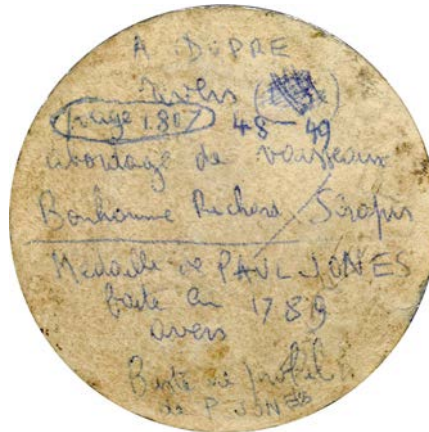 A DUPRE
Revers
page 1807 48-49
abordage de vaisseaux
Bonhomme Richard / Serapis
Médaille de PAUL JONES
faite en 1789
avers
Buste de profil
de P. JONES